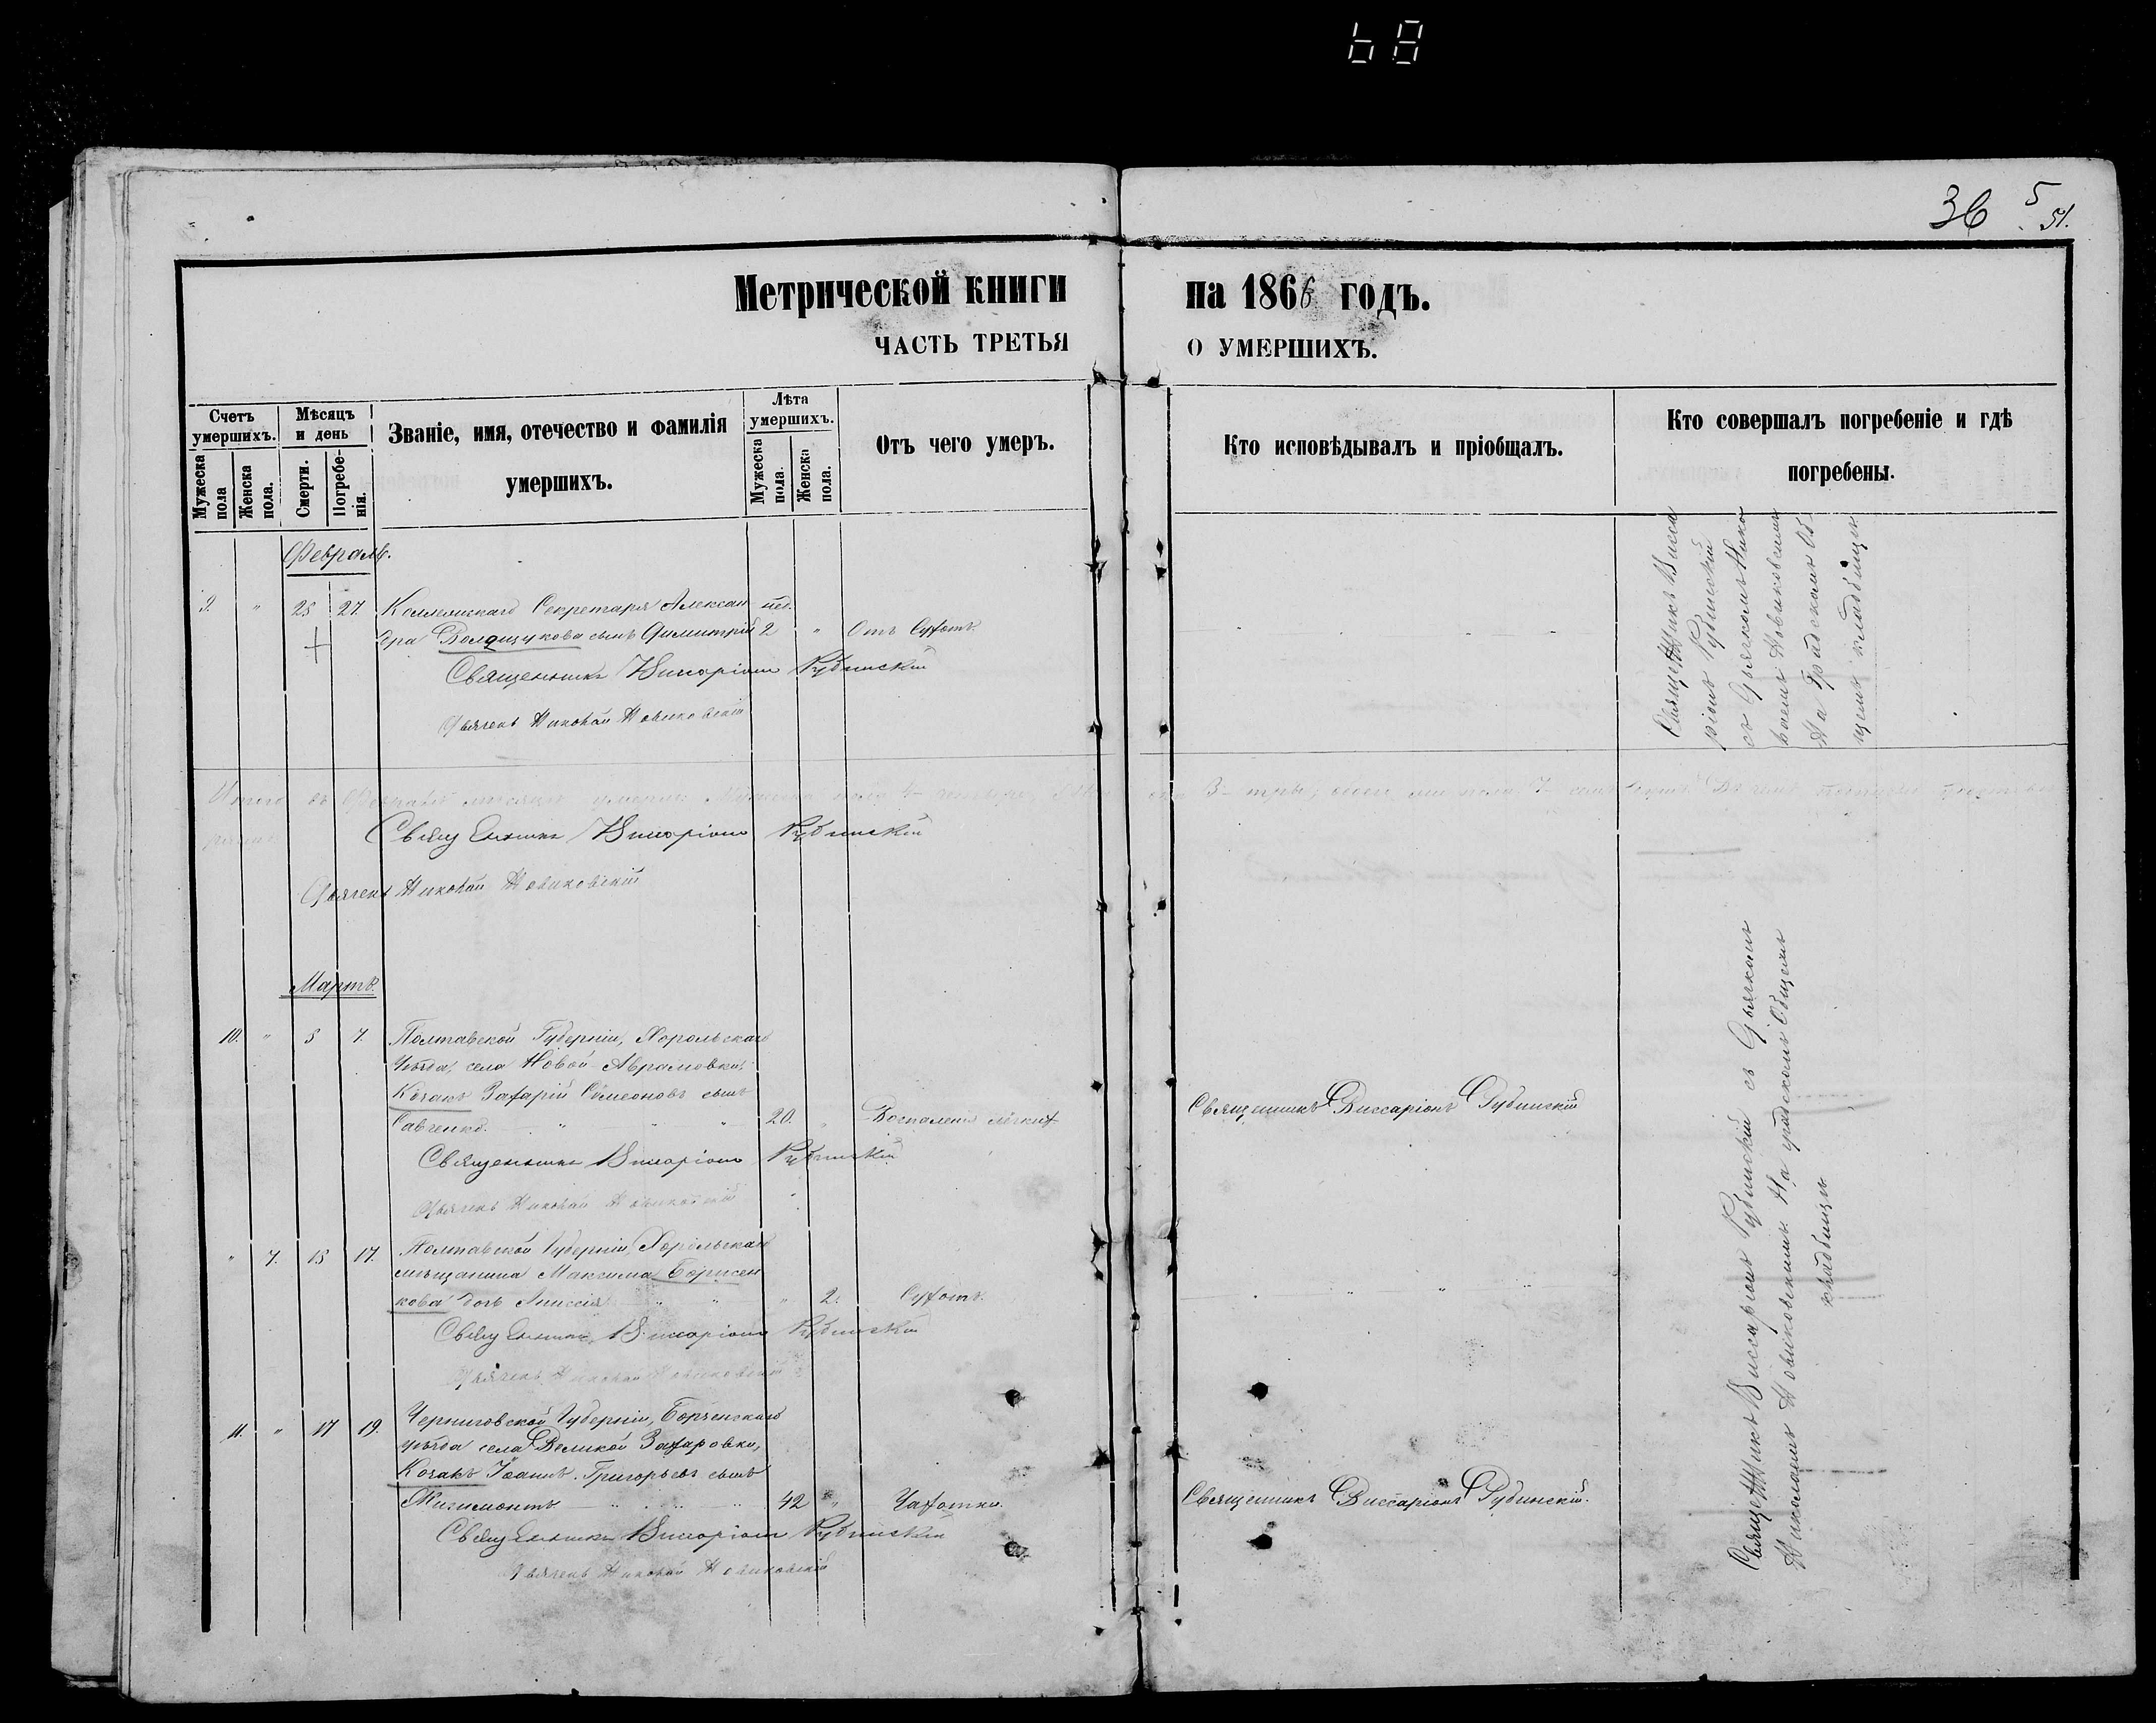 68
36 5 51.
Метрической книги на 1866 годъ.
ЧАСТЬ ТРЕТЬЯ О УМЕРШИХЪ.
Счетъ умершихъ.
Мужеска пола
Женска пола.
Мѣсяцъ и день
Смерти.
Погребенія.
Званіе, имя, отечество и фамилія умершихъ.
Лѣта умершихъ.
Мужеска пола.
Женска пола.
Отъ чего умеръ.
Кто исповѣдывалъ и пріобщалъ.
Кто совершалъ погребеніе и гдѣ погребены.
Февраль.
9. " 25 27. Коллежскаго Секретаря Алексан нед.
дра сынъ Димитрій 2 " Отъ Сухотъ.
Священникъ Висаріонъ Рубинскій
Дьячекъ Николай Новиковскій
Священникъ Висса
ріонъ Рубинскій
съ Дьячкомъ Нико
лаемъ Новиковскимъ
На Градскомъ Об
щемъ кладбищѣ
Итого въ Февралѣ месяце умерло: Мужеска пола 4 четыре 3 три, обоего пола 7 семь душъ.
Священникъ Висаріонъ Рубинскій
Дьячекъ Николай Новиковскій
Мартъ.
10. " 5 7. Полтавской Губерніи, Хорольскаго
Уѣзда, села Новой-Аврамовки,
Козакъ Захарій Симеоновъ сынъ
Савченко. " " " 20. " Воспаленія лёгкихъ
Священникъ Виссаріонъ Рубинскій
Священникъ Висаріонъ Рубинскій
Дьячекъ Николай Новиковскій
" 7. 15 17. Полтавской Губерніи, Хорольскаго
мѣщанина Максима Борисен
кова дочь Анисія " " " 2. Сухотъ.
Священникъ Висаріонъ Рубинскій
Дьячекъ Николай Новиковскій
11. " 17 19. Черниговской Губерніи, Борзенскаго
уѣзда села Великой Загаровки,
Козакъ Іоаннъ Григорьевъ сынъ
42 " Чахотки.
Священникъ Виссаріонъ Рубинскій.
Священникъ Висаріонъ Рубинскій
Дьячекъ Николай Новиковскій
Священникъ Виссаріонъ Рубинскій съ Дьячкомъ
Николаемъ Новиковскимъ На градскомъ Общемъ
кладбищѣ